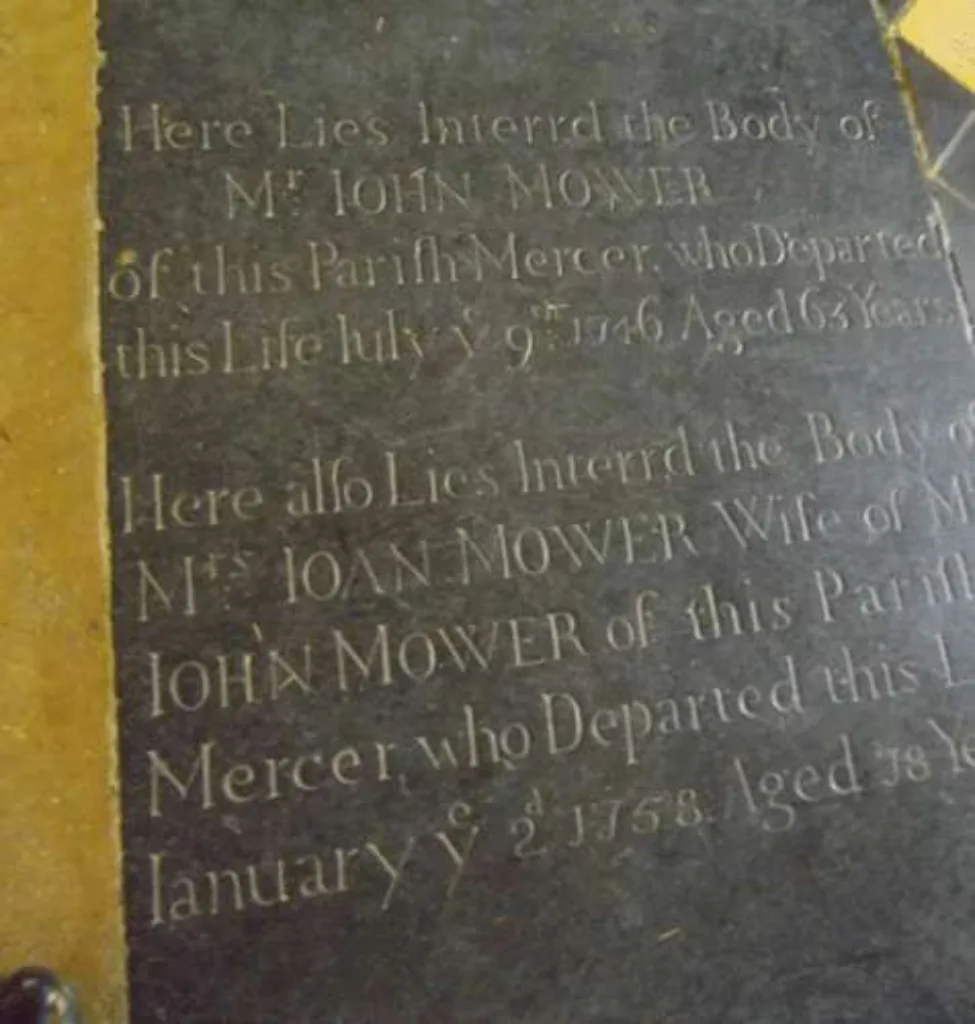 Here Lies Interrd the Body of
Mʳ IOHN MOWER
of this Pariſh Mercer, who Departed
this Life Iuly yᵉ 9ᵗʰ 1746 Aged 63 Years
Here alſo Lies Interrd the Body
Mʳˢ IOAN MOWER Wife of
IOHN MOWER of this Pariſh
Mercer, who Departed this
Ianuary yᵉ 2ᵈ 1758 Aged 78